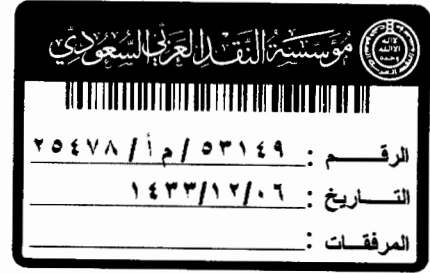 مؤسسة النقد العربي السعودي
الرقـــم : ٥٣١٤٩ / م أ / ٢٥٤٧٨
التـــاريخ : ١٤٣٣/١٢/٠٦
المرفقـات :